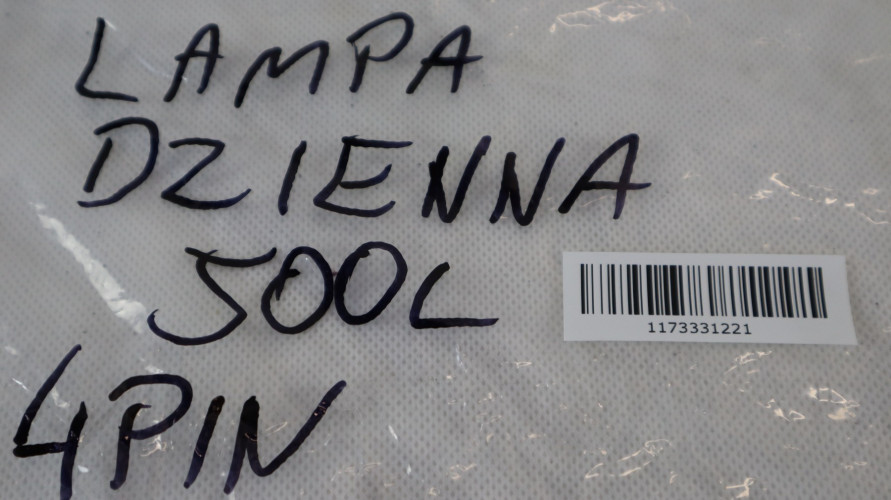 LAMPA
DZIENNA
500L
1173331221
4PIN